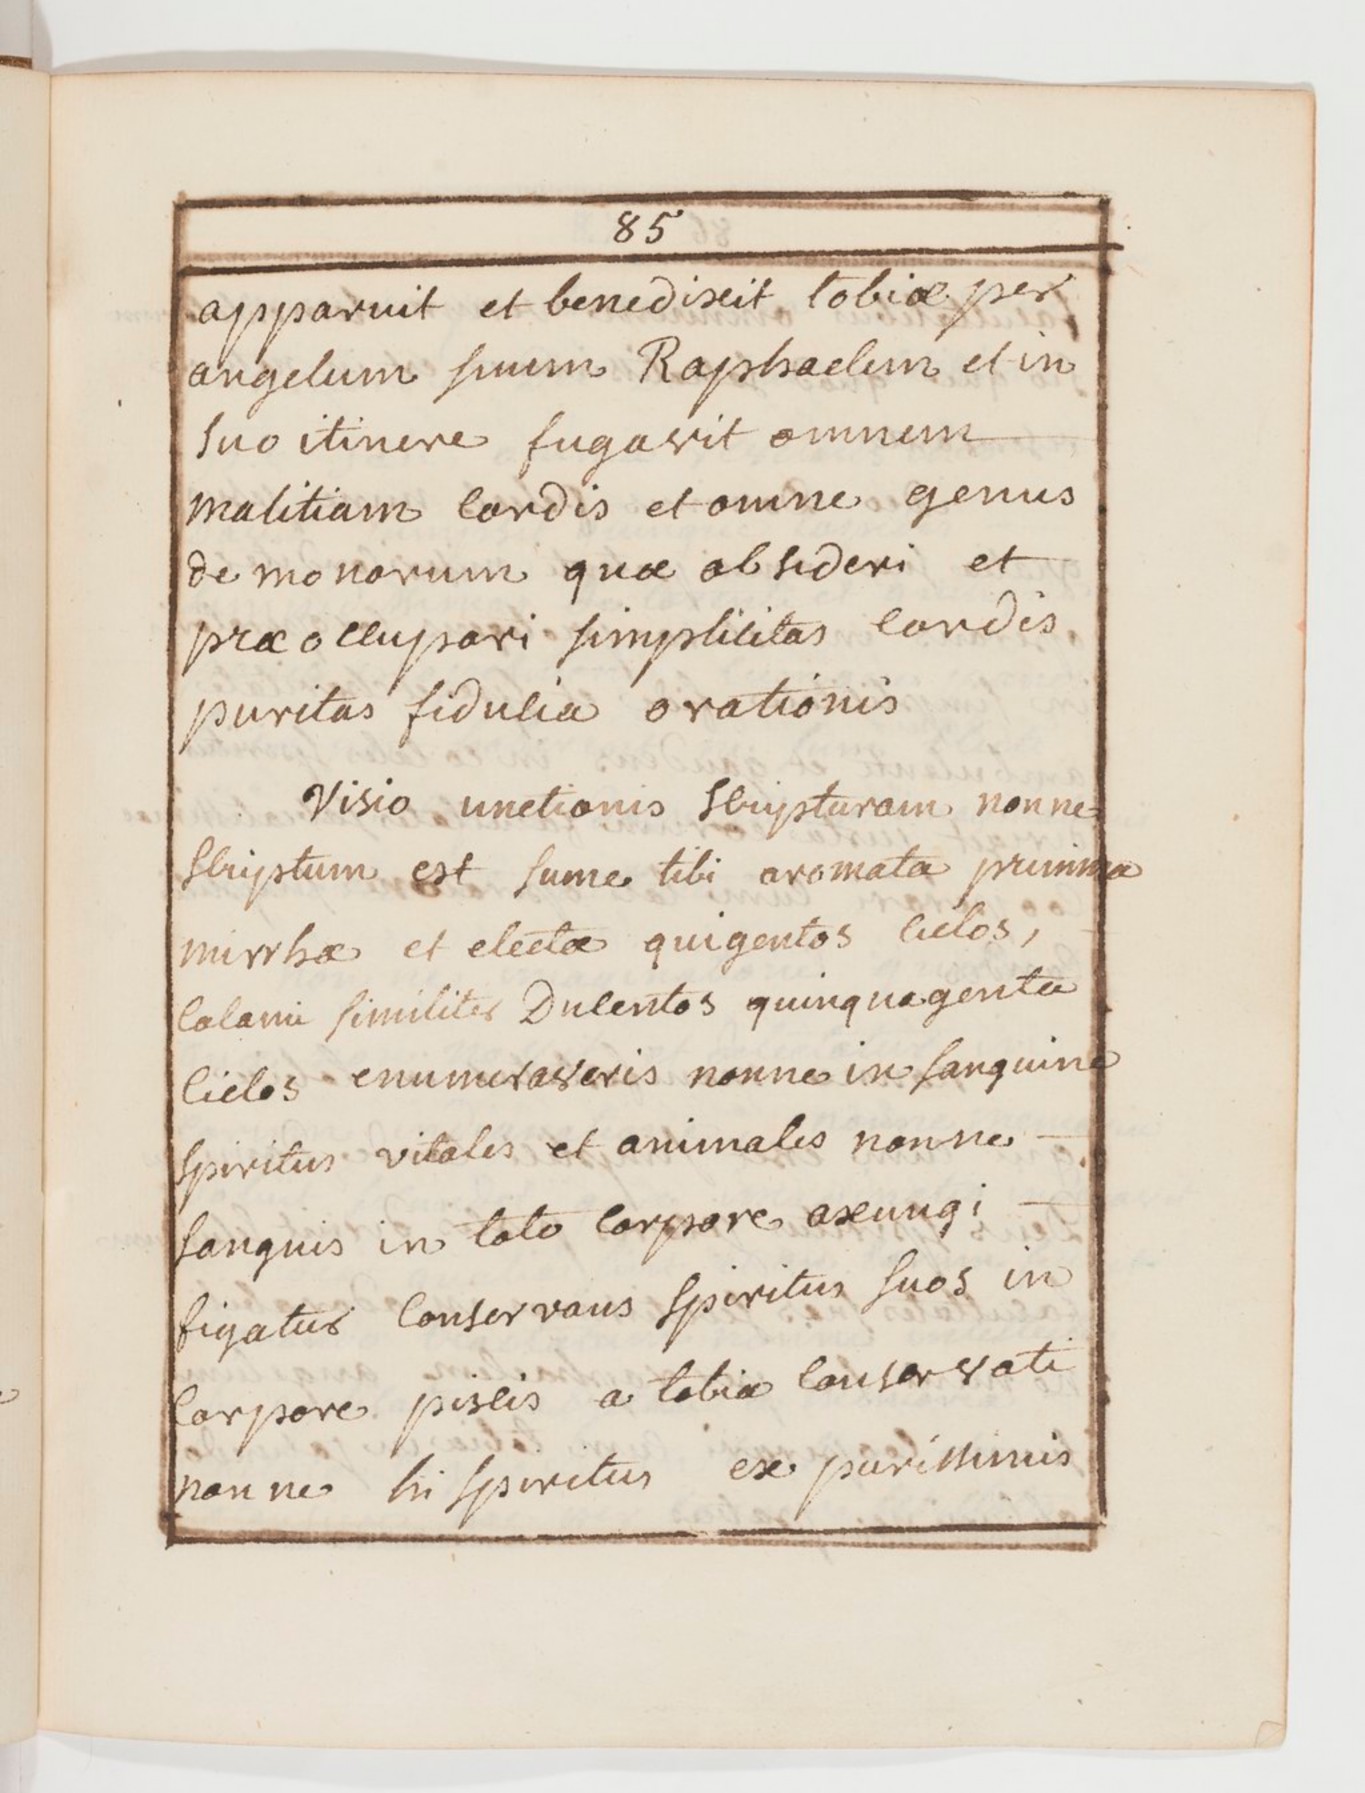 85
apparuit et benedixit tobiæ per
angelum suum Raphaelem et in
suo itinere fugavit omnem
malitiam cordis et omne genus
demonorum quæ obsideri et
præoccupari simplicitas cordis
puritas fiducia orationis
Visio unctionis scripturam nonne
scriptum est sume tibi aromata prima
mirrhæ et electæ quigentos ciclos,
calami similiter Ducentos quinquagenta
ciclos enumeraveris nonne in sanguine
spiritus vitales et animales nonne
sanguis in toto corpore axungi
figatur conservans spiritus suos in
corpore piscis a tobia conservati
nonne hi spiritus ex purissimis